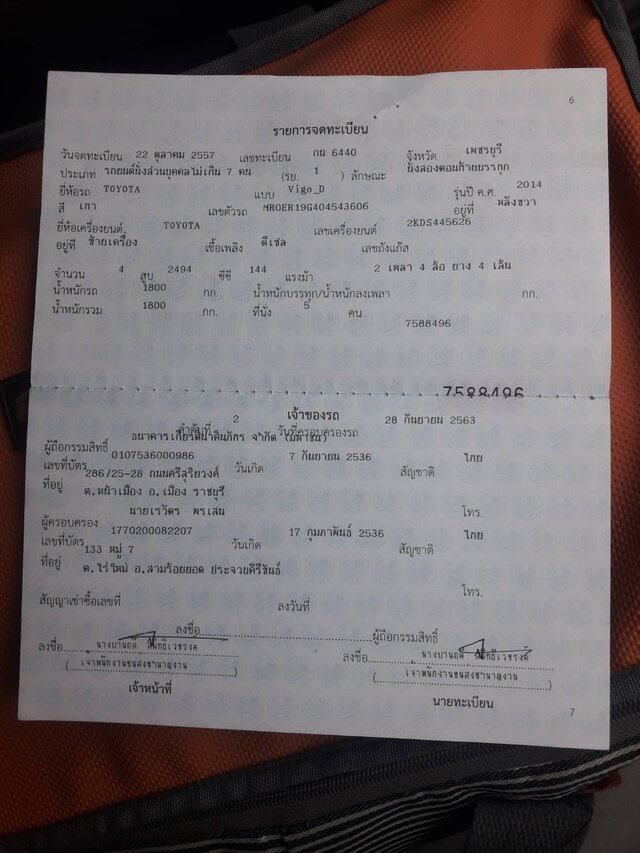 6
รายการจดทะเบียน
วันจดทะเบียน 22 ตุลาคม 2557 เลขทะเบียน กน 6440 จังหวัด เพชรบุรี
ประเภท รถยนต์นั่งส่วนบุคคลไม่เกิน 7 คน (รย. 1 ) ลักษณะ นั่งสองตอนท้ายบรรทุก
ยี่ห้อรถ TOYOTA แบบ Vigo_D รุ่นปี ค.ศ. 2014
สี เทา เลขตัวรถ MROER19G404543606 อยู่ที่ หลังขวา
ยี่ห้อเครื่องยนต์ TOYOTA เลขเครื่องยนต์ 2KDS445626
อยู่ที่ ซ้ายเครื่อง เชื้อเพลิง ดีเซล เลขถังแก๊ส
จำนวน 4 สูบ 2494 ซีซี 144 แรงม้า 2 เพลา 4 ล้อ ยาง 4 เส้น
น้ำหนักรถ 1800 กก. น้ำหนักบรรทุก/น้ำหนักลงเพลา กก.
น้ำหนักรวม 1800 กก. ที่นั่ง 5 คน
7588496
7588496
เจ้าของรถ
ลำดับที่ 2 วันที่ครอบครองรถ 28 กันยายน 2563
ผู้ถือกรรมสิทธิ์ ธนาคารเกียรตินาคินภัทร จำกัด (มหาชน)
เลขที่บัตร 0107536000986 วันเกิด 7 กันยายน 2536 สัญชาติ ไทย
ที่อยู่ 286/25-28 ถนนศรีสุริยวงศ์
ต.หน้าเมือง อ.เมือง ราชบุรี
โทร.
ผู้ครอบครอง นายเรวัตร พรเล่น
เลขที่บัตร 1770200082207 วันเกิด 17 กุมภาพันธ์ 2536 สัญชาติ ไทย
ที่อยู่ 133 หมู่ 7
ต.ไร่ใหม่ อ.สามร้อยยอด ประจวบคีรีขันธ์
โทร.
สัญญาเช่าซื้อเลขที่ ลงวันที่
ลงชื่อ ผู้ถือกรรมสิทธิ์
ลงชื่อ ลงชื่อ
(เจ้าพนักงานขนส่งชำนาญงาน) (เจ้าพนักงานขนส่งชำนาญงาน)
เจ้าหน้าที่ นายทะเบียน
7